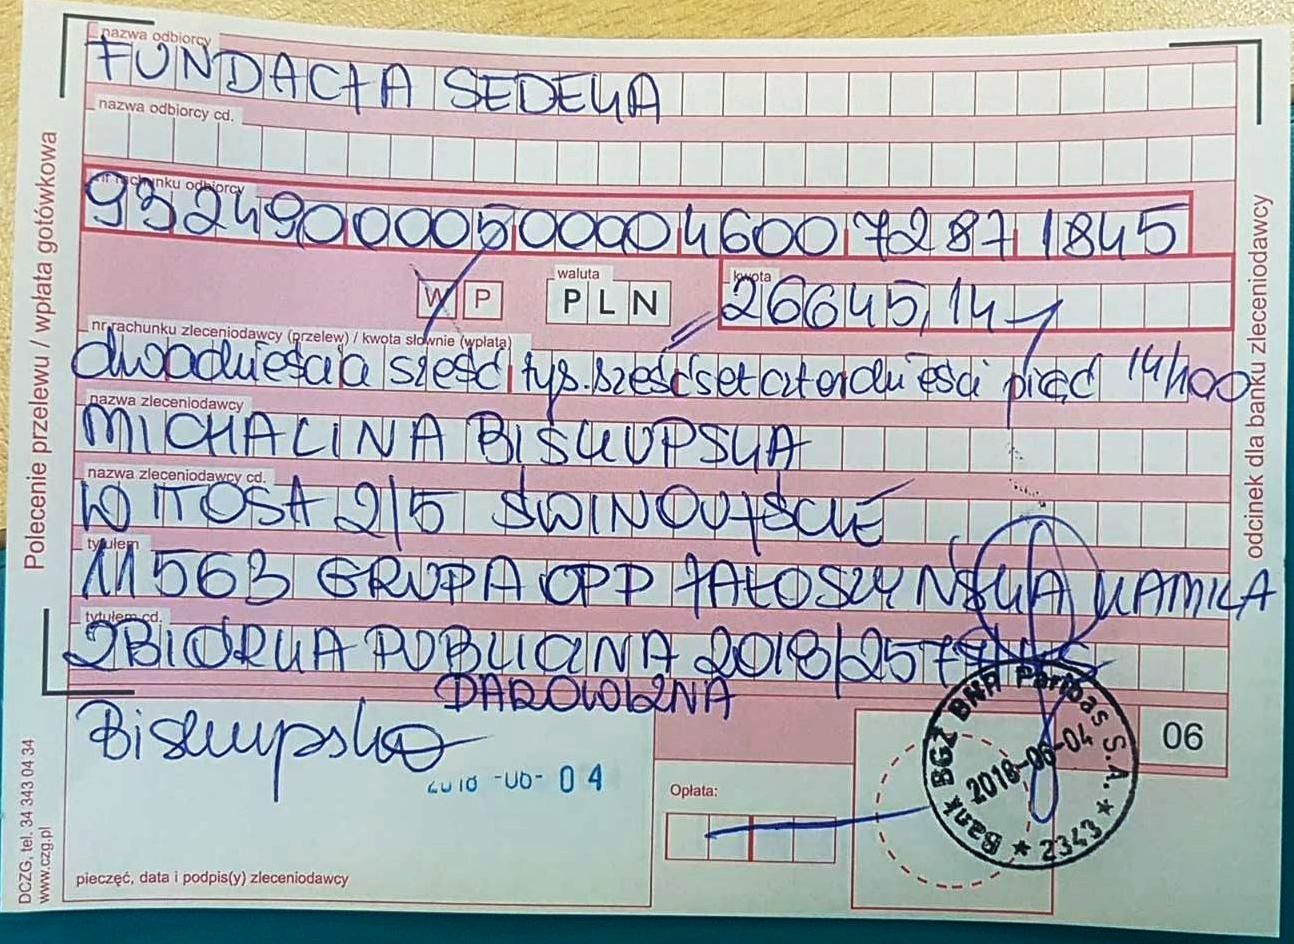 nazwa odbiorcy
FUNDACJA SEDEKA
nazwa odbiorcy cd.
nr rachunku odbiorcy
93249000050000460072871845
W P
waluta
PLN
kwota
26645,14
nr rachunku zleceniodawcy (przelew) / kwota słownie (wpłata)
dwadzieścia sześć tys. sześćset czterdzieści pięć 14/100
nazwa zleceniodawcy
MICHALINA BISKUPSKA
nazwa zleceniodawcy cd.
WITOSA 2/5 ŚWINOUJŚCIE
tytułem
11563 GRUPA OPP JAŁOSZYŃSKA KAMILA
tytułem cd.
ZBIÓRKA PUBLICZNA 2018/257
DAROWIZNA
Biskupska
2018 -06- 04
Opłata:
06
Bank BGŻ BNP Paribas S.A. * 2343 *
2018-06-04
pieczęć, data i podpis(y) zleceniodawcy
Polecenie przelewu / wpłata gotówkowa
DCZG, tel. 34 343 04 34
www.czg.pl
odcinek dla banku zleceniodawcy